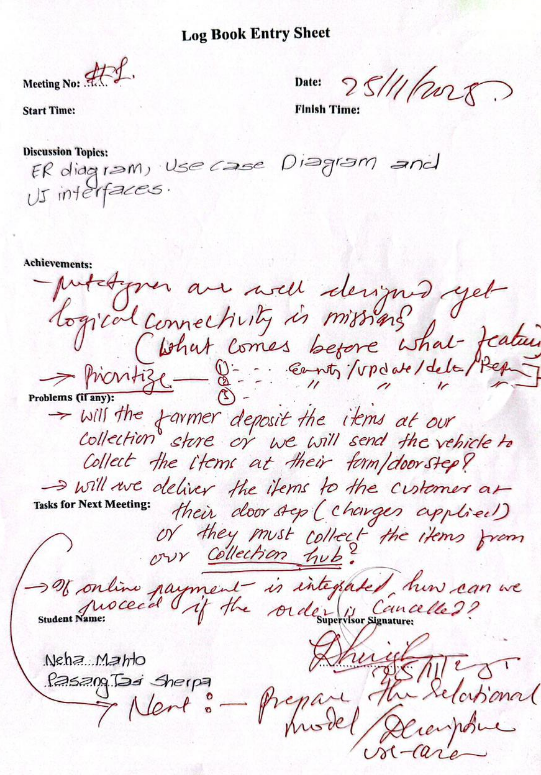 Log Book Entry Sheet
Meeting No: #1.
Date: 25/11/2025.
Start Time:
Finish Time:
Discussion Topics:
ER diagram, Use case Diagram and
UI interfaces.
Achievements:
- prototypes are well designed yet
logical connectivity is missing
(What comes before what- feature
→ Prioritize — ① - - . /update/delete/
② - - . " " " "
③
Problems (if any):
→ will the farmer deposit the items at our
collection store or we will send the vehicle to
collect the items at their farm/doorstep?
→ will we deliver the items to the customer at
their doorstep (charges applied)
Tasks for Next Meeting:
or they must collect the items from
our collection hub?
→ If online payment is integrated, how can we
proceed if the order is cancelled??
Student Name:
Supervisor Signature:
Neha Mahto
Pasang Tasi Sherpa
25/11/25
→ Next :- Prepare the relational
model / Descriptive
use-case